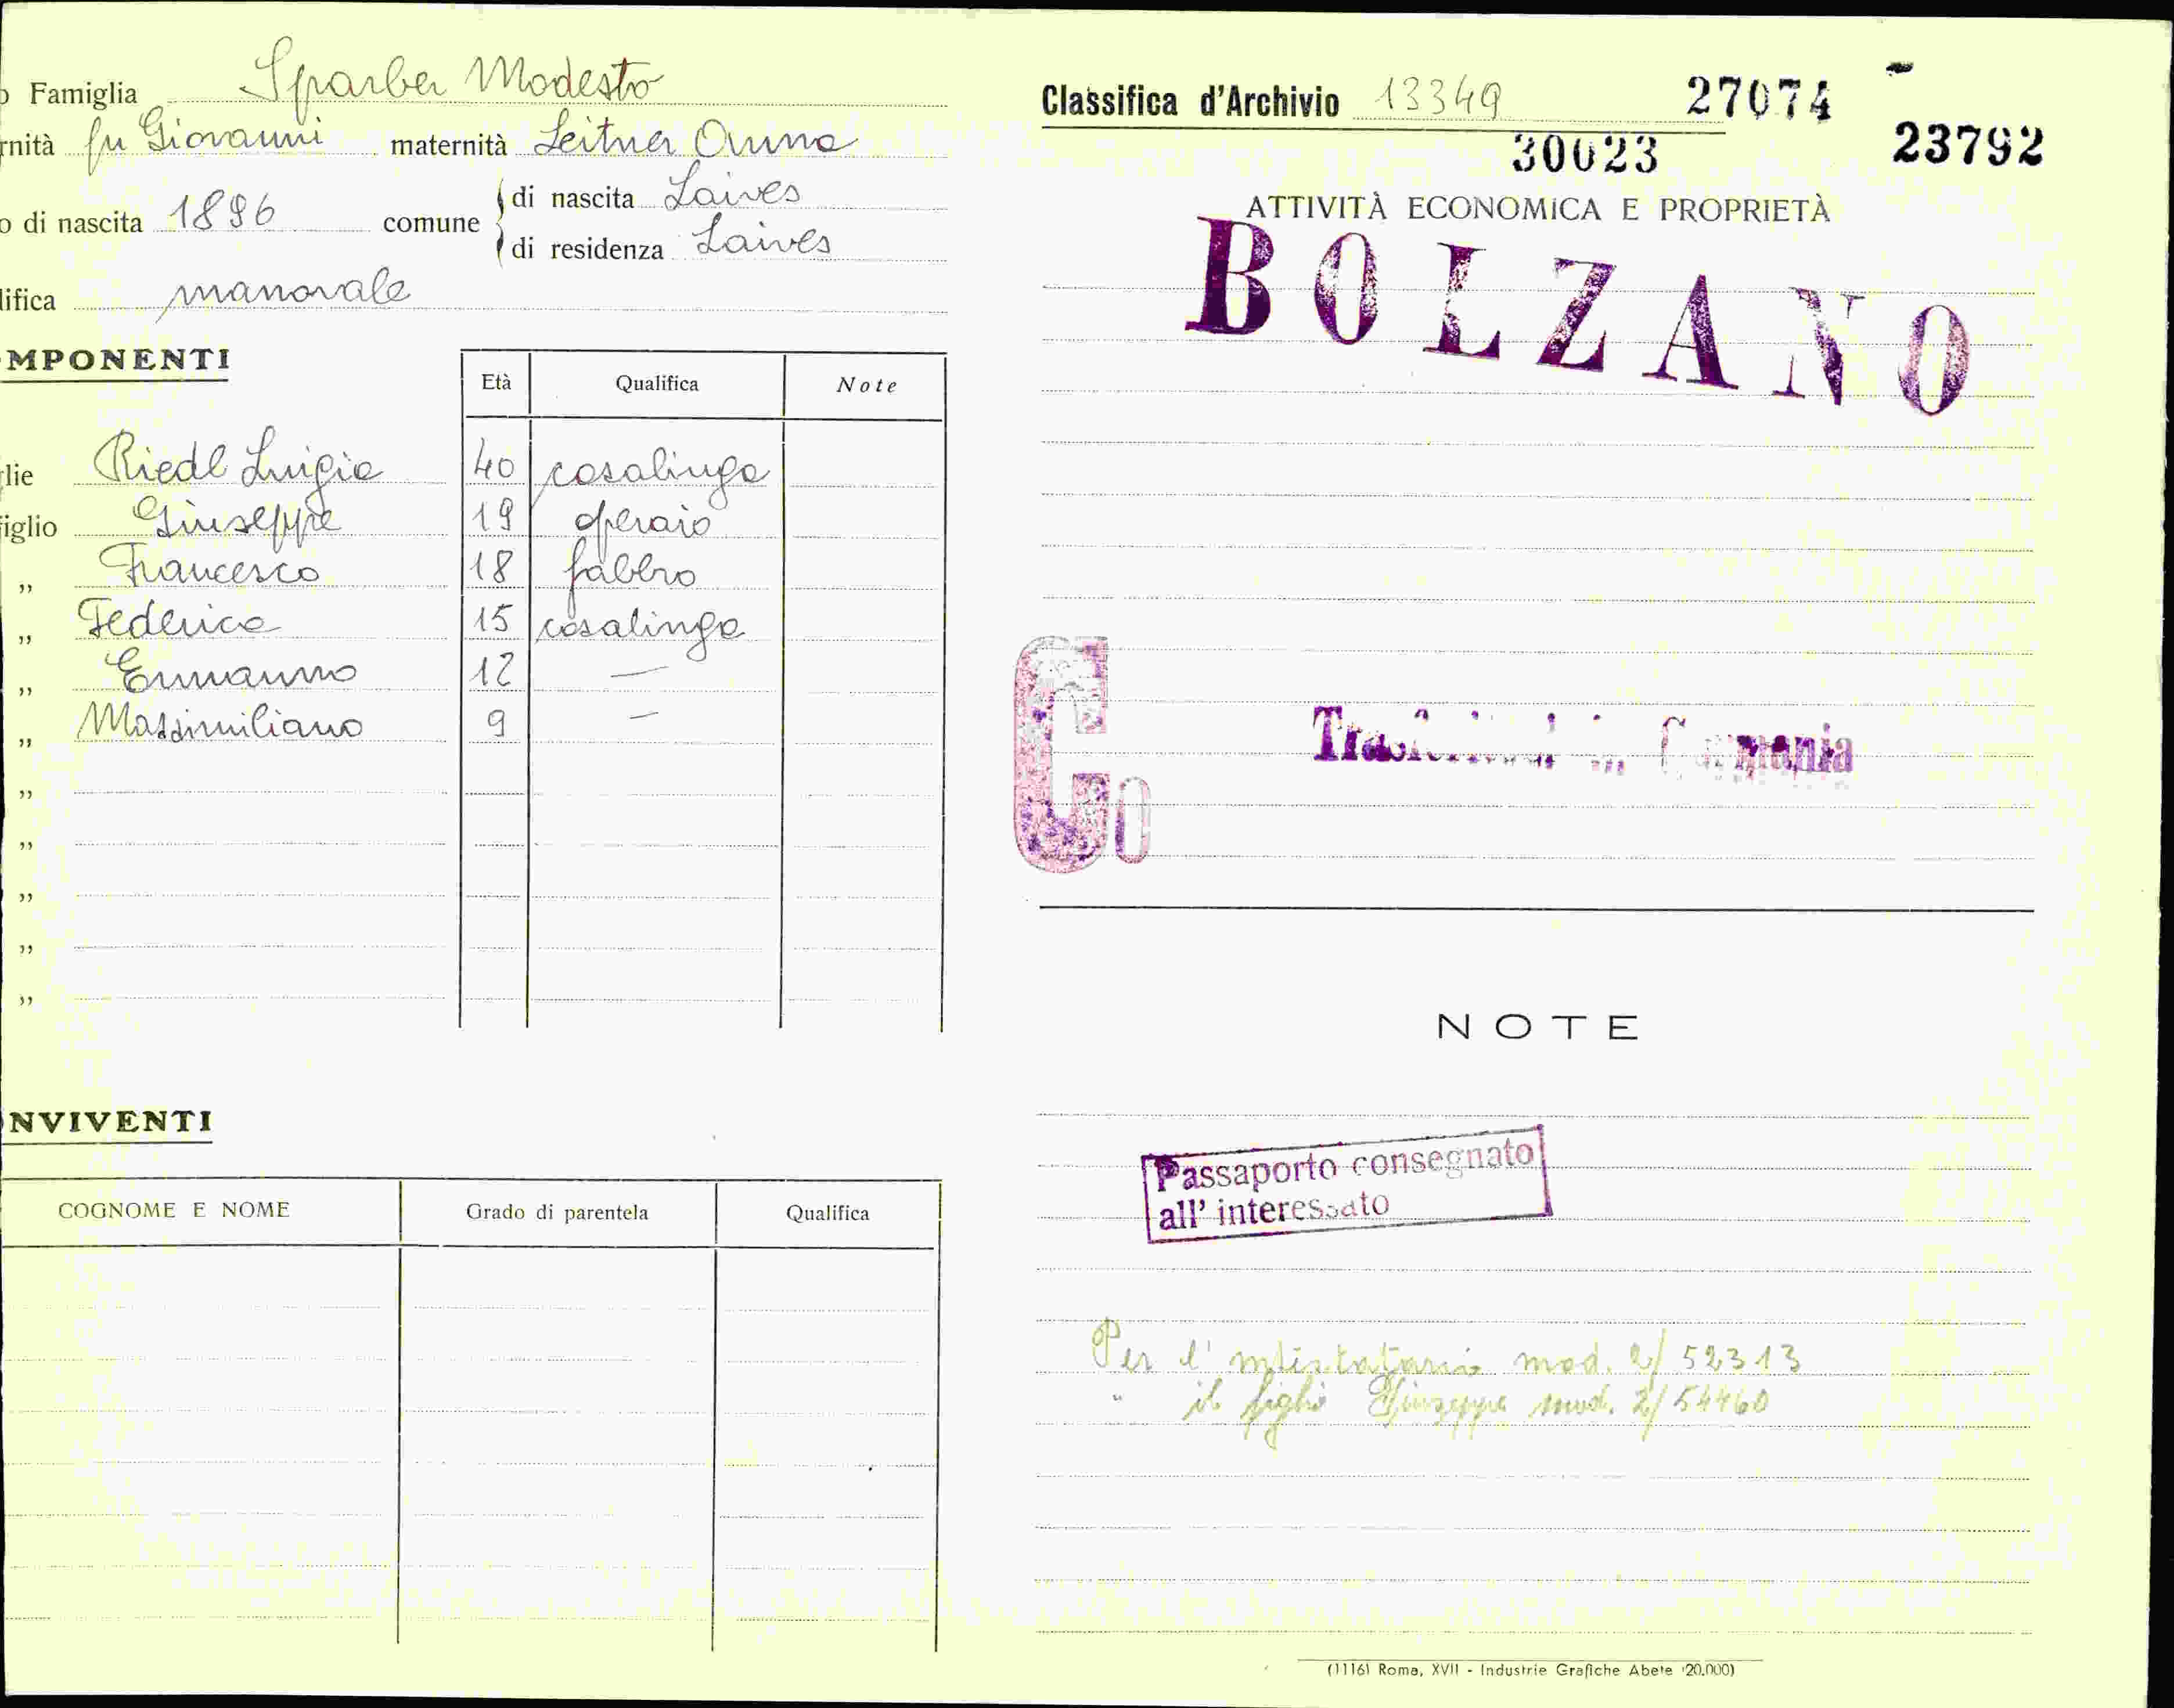 Famiglia Sparber Modesto
rnità fu Giovanni maternità Leitner Anna
o di nascita 1896 comune di nascita Laives
di residenza Laives
lifica manovale
MPONENTI
Età Qualifica Note
lie Riedl Luigia 40 casalinga
iglio Giuseppe 19 operaio
„ Francesco 18 fabbro
„ Federica 15 casalinga
„ Ermanno 12 —
„ Massimiliano 9 —
„
„
„
„
„
NVIVENTI
COGNOME E NOME Grado di parentela Qualifica
Classifica d'Archivio 13349 27074
30023 23792
ATTIVITÀ ECONOMICA E PROPRIETÀ
BOLZANO
G0
in Germania
NOTE
Passaporto consegnato
all' interessato
Per l' mod. 2/52313
" il figlio Giuseppe mod. 2/54460
(1116) Roma, XVII - Industrie Grafiche Abete (20.000)